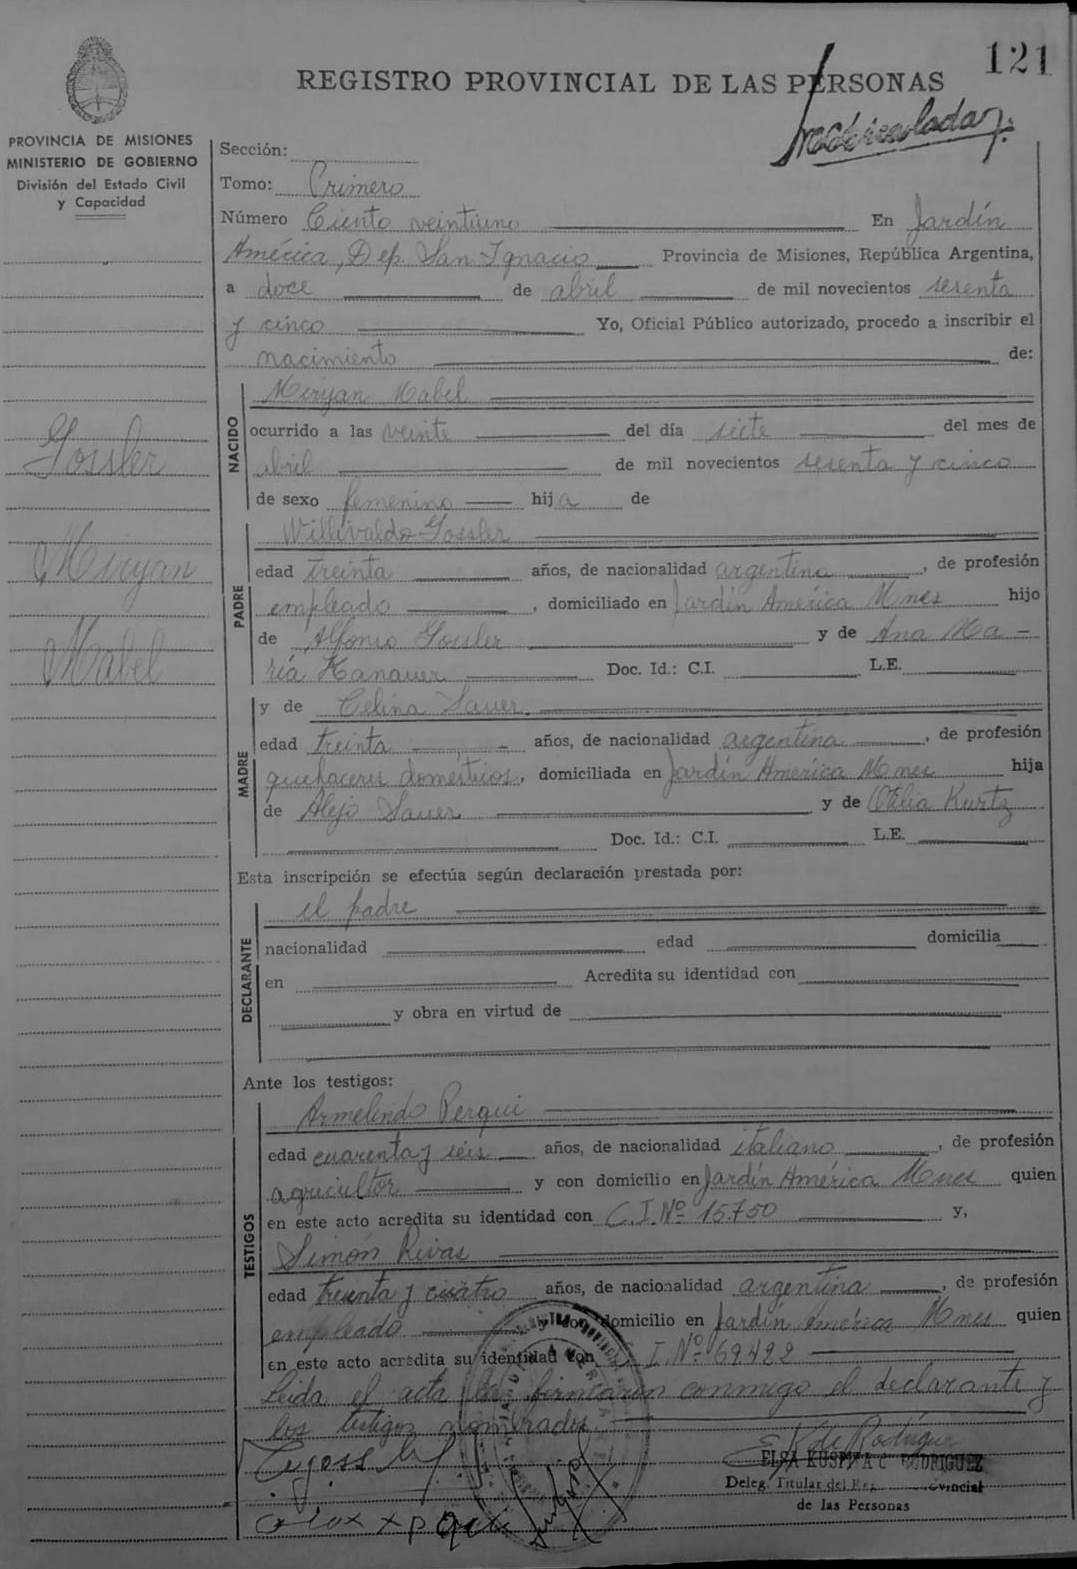 121
REGISTRO PROVINCIAL DE LAS PERSONAS
Matriculada
PROVINCIA DE MISIONES
MINISTERIO DE GOBIERNO
División del Estado Civil
y Capacidad
Gossler
Miryan
Mabel
Sección:
Tomo: Primero
Número Ciento veintiuno En Jardín
América, Dep. San Ignacio Provincia de Misiones, República Argentina,
a doce de abril de mil novecientos sesenta
y cinco Yo, Oficial Público autorizado, procedo a inscribir el
nacimiento de:
NACIDO
Miryan Mabel
ocurrido a las veinte del día siete del mes de
abril de mil novecientos sesenta y cinco
de sexo femenino hija de
PADRE
Willivaldo Gossler
edad treinta años, de nacionalidad argentina, de profesión
empleado, domiciliado en Jardín América Mnes hijo
de Alfonso Gossler y de Ana Ma-
ría Hanauer Doc. Id.: C.I. L.E.
MADRE
y de Celina Sauer.
edad treinta años, de nacionalidad argentina, de profesión
quehaceres domésticos, domiciliada en Jardín América Mnes hija
de Alejo Sauer y de Otilia Kurtz
Doc. Id.: C.I. L.E.
Esta inscripción se efectúa según declaración prestada por:
DECLARANTE
el padre
nacionalidad edad domicilia
en Acredita su identidad con
y obra en virtud de
Ante los testigos:
TESTIGOS
Armelindo Perqui
edad cuarenta y seis años, de nacionalidad italiano, de profesión
agricultor y con domicilio en Jardín América Mnes quien
en este acto acredita su identidad con C.I. Nº 15.750 y,
Simón Rivas
edad treinta y cuatro años, de nacionalidad argentina, de profesión
empleado y con domicilio en Jardín América Mnes quien
en este acto acredita su identidad con C.I. Nº 69422
Leída el acta la firmaron conmigo el declarante y
los testigos nombrados.
E K de Rodríguez
ELSA C RODRIGUEZ
Deleg. Titular del Provincial
de las Personas